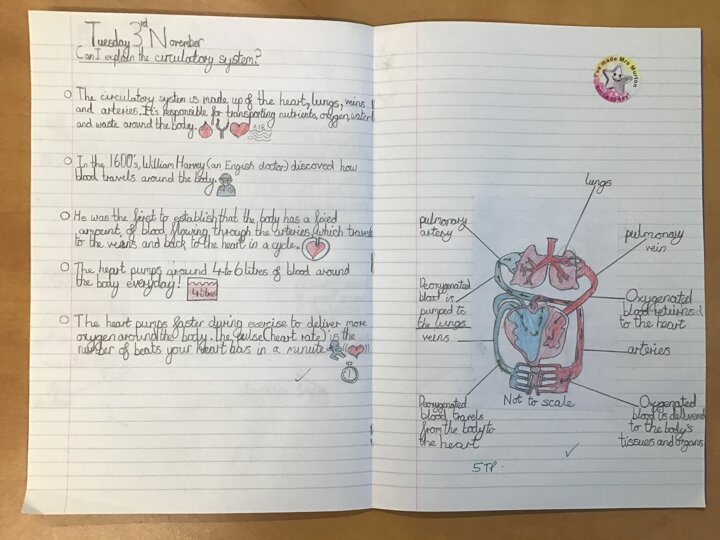 Tuesday 3rd November
Can I explain the circulatory system?
The circulatory system is made up of the heart, lungs, veins
and arteries. It's responsible for transporting nutrients, oxygen, water
and waste around the body.
AIR
In the 1600's, William Harvey (an English doctor) discovered how
blood travels around the body.
He was the first to establish that the body has a fixed
amount of blood flowing through the arteries, which travels
to the veins and back to the heart in a cycle.
The heart pumps around 4 to 6 litres of blood around
the body everyday!
4 litres
The heart pumps faster during exercise to deliver more
oxygen around the body. The pulse (heart rate) is the
number of beats your heart has in a minute
I've made Mrs Murton
smile today!
lungs
pulmonary
artery
pulmonary
vein
Deoxygenated
blood is
pumped to
the lungs
Oxygenated
blood returns
to the heart
veins
arteries
Deoxygenated
blood travels
from the body to
the heart
Not to scale
Oxygenated
blood is delivered
to the body's
tissues and organs
STP.